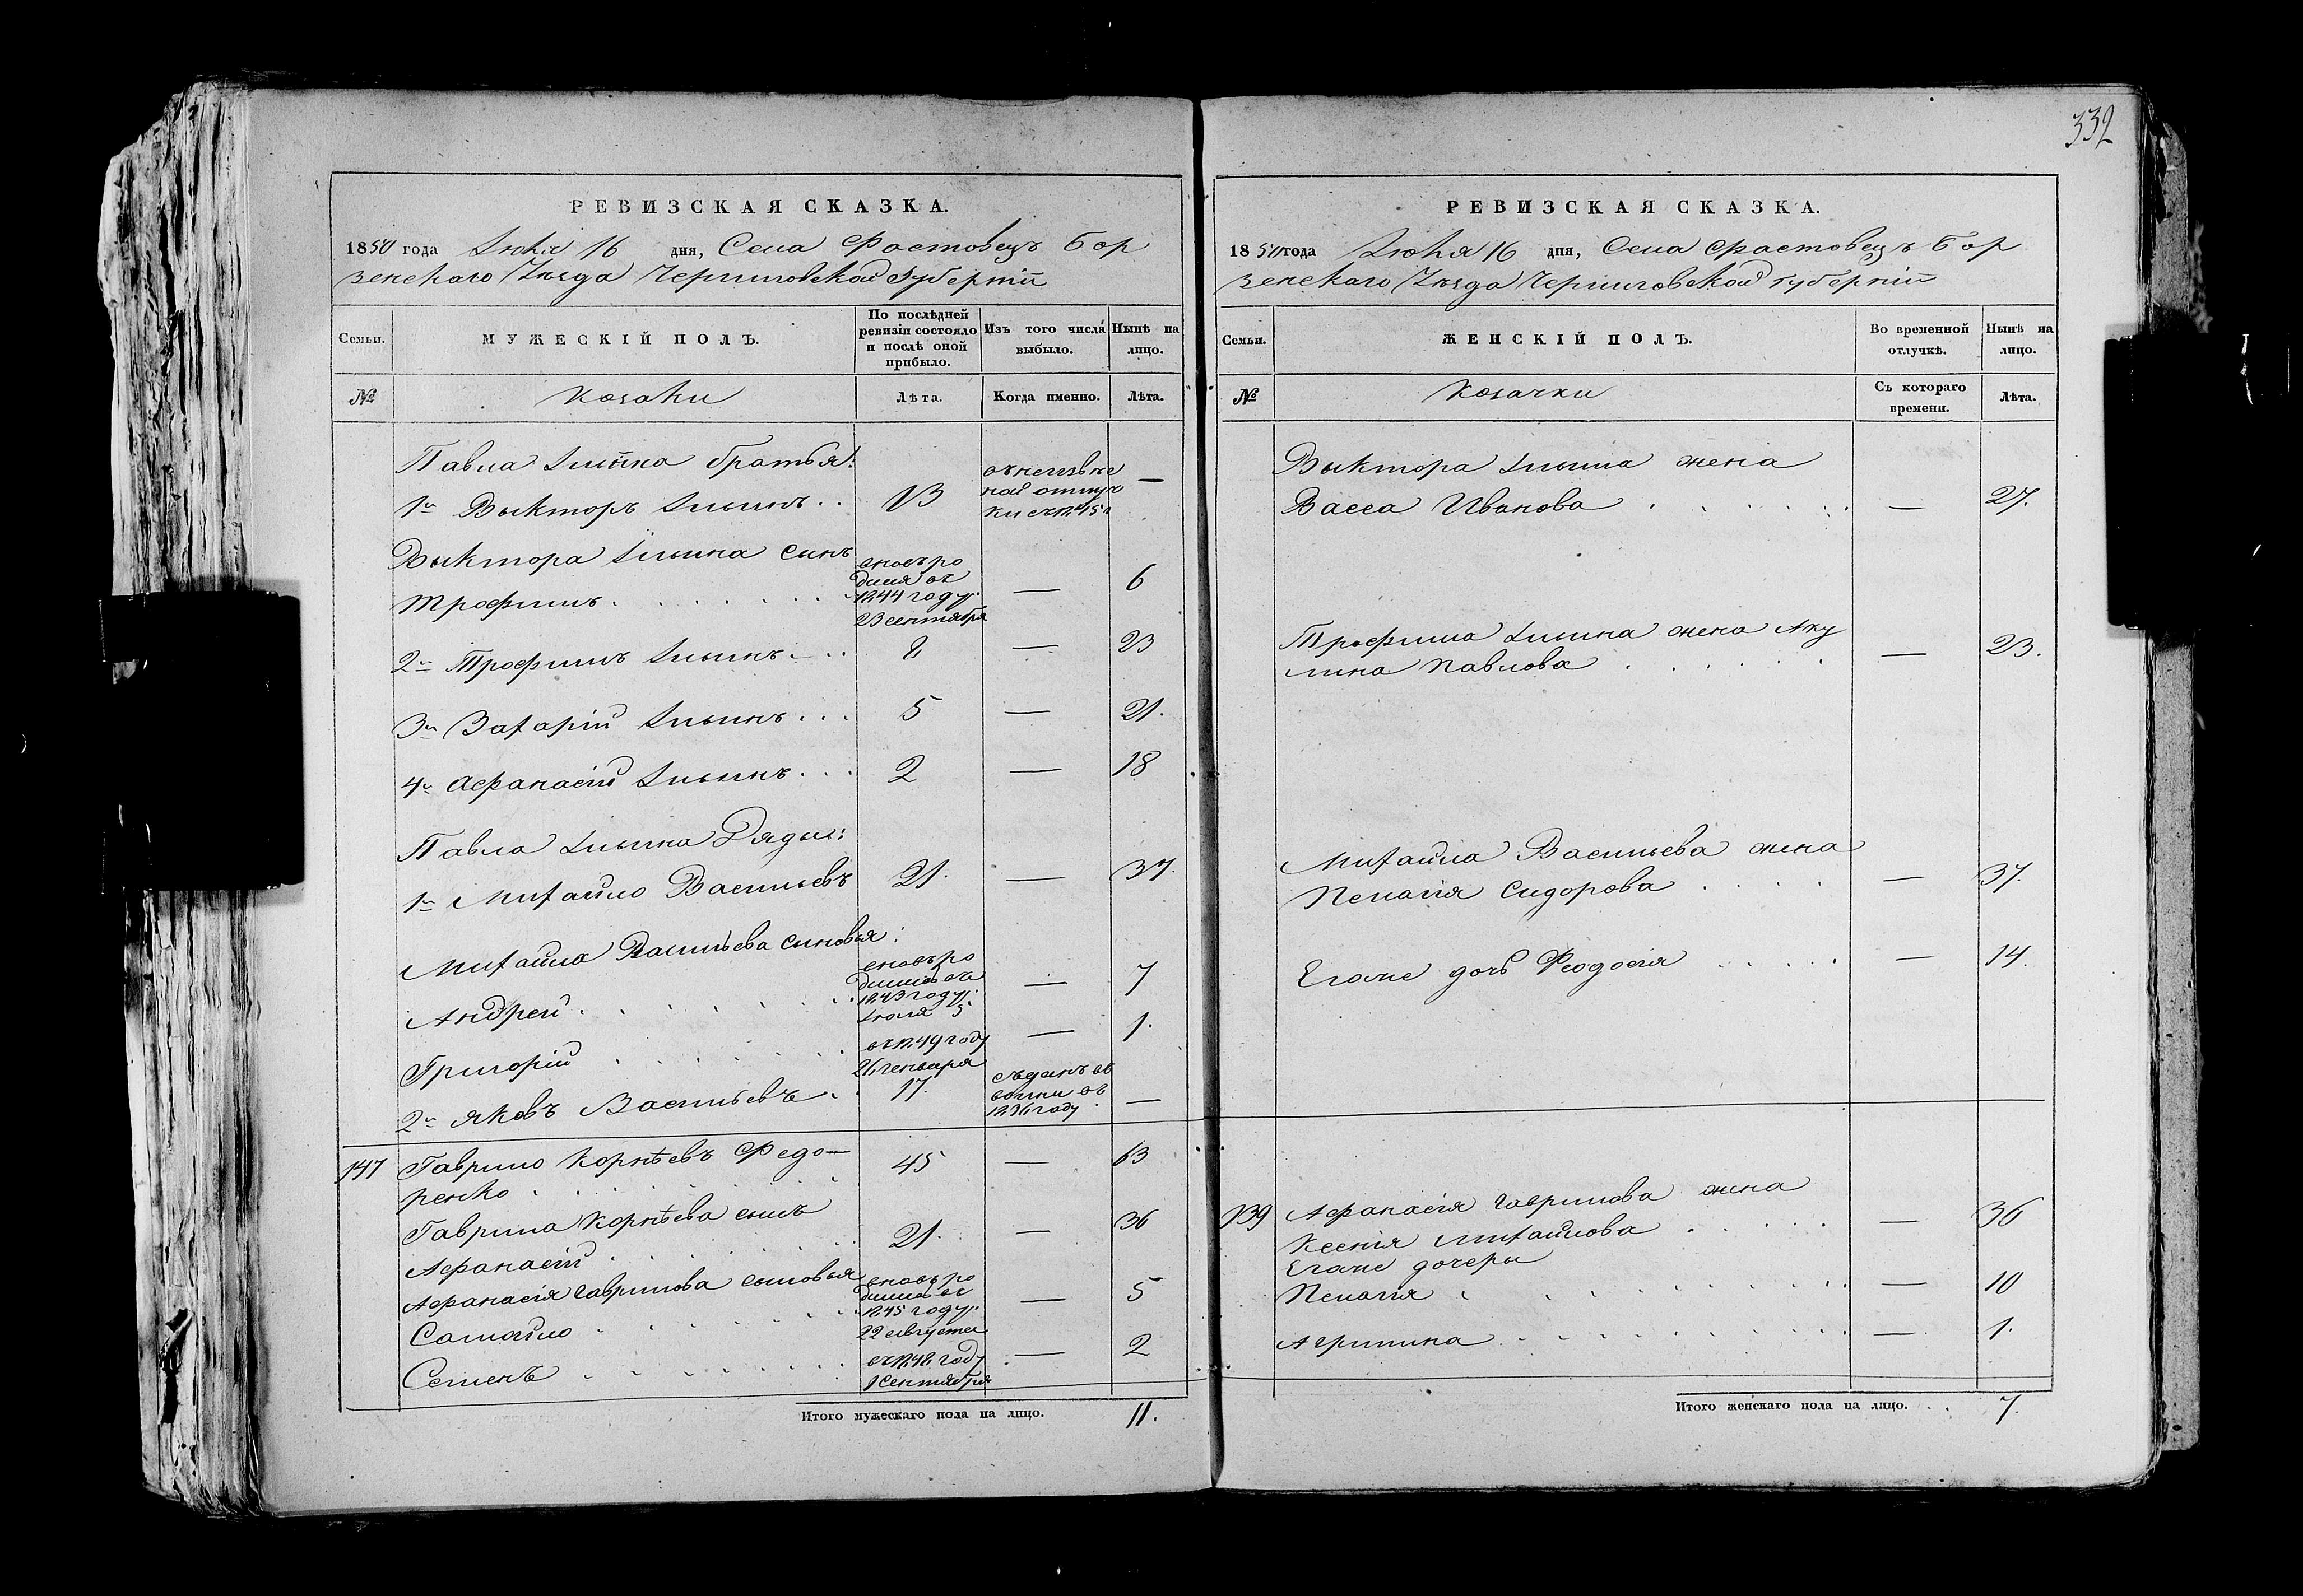 332
РЕВИЗСКАЯ СКАЗКА.
1850 года Іюня 16 дня, Села Фастовецъ Бор
зенскаго Уѣзда Черниговской Губерніи
Семьи. МУЖЕСКІЙ ПОЛЪ. По послѣдней ревизіи состояло и послѣ оной прибыло. Изъ того числа выбыло. Нынѣ на лицо.
№ Козаки Лѣта. Когда именно. Лѣта.
Павла Ильина братья:
1й Выкторъ Ильинъ . . 13 въ неизвѣст
ной отлуч
ки съ 1845 г —
Выктора Ильина сынъ
Трофимъ . . . . . . вновь ро
дился въ
1844 году
23 сентября — 6
2й Трофимъ Ильинъ . . 8 — 23
3й Захарій Ильинъ . . . 5 — 21.
4й Афанасій Ильинъ . . . 2 — 18
Павла Ильина Дядьи:
1й Михайло Васильевъ 21. — 37.
Михайла Васильева сыновья:
Андрей . . . . . . . вновь ро
дился въ
1843 году
Іюля 5 — 7
Григорій . . . . . . въ 1849 году
26 генваря — 1.
2й Яковъ Васильевъ . . 17. съданъ въ
1836 году —
147 Гаврило Корнѣевъ Федо-
ренко . . . . . . . . 45 — 63
Гаврила Корнѣева сынъ
Афанасій . . . . . . . 21. — 36
Афанасія Гаврилова сыновья
Самойло . . . . . . . вновь ро
дился въ
1845 году
22 августа — 5
Семенъ . . . . . . . въ 1848 году
1 Сентября — 2
Итого мужескаго пола на лицо. 11.
РЕВИЗСКАЯ СКАЗКА.
1850 года Іюня 16 дня, Села Фастовецъ Бор
зенскаго Уѣзда Черниговской Губерніи
Семьи. ЖЕНСКІЙ ПОЛЪ. Во временной отлучкѣ. Нынѣ на лицо.
№ Козачки Съ котораго времени. Лѣта.
Выктора Ильина жена
Васса Иванова . . . . . . — 27.
Трофима Ильина жена Аку
лина Павлова . . . . . . — 23.
Михайла Васильева жена
Пелагія Сидорова . . . . — 37.
Егоже дочь Феодосія . . . . . — 14.
139 Афанасія Гаврилова жена
Ксенія Михайлова . . . . . — 36
Егоже дочеры
Пелагія . . . . . . . . — 10
Агрипина . . . . . . . . . — 1.
Итого женскаго пола на лицо. . . 7.